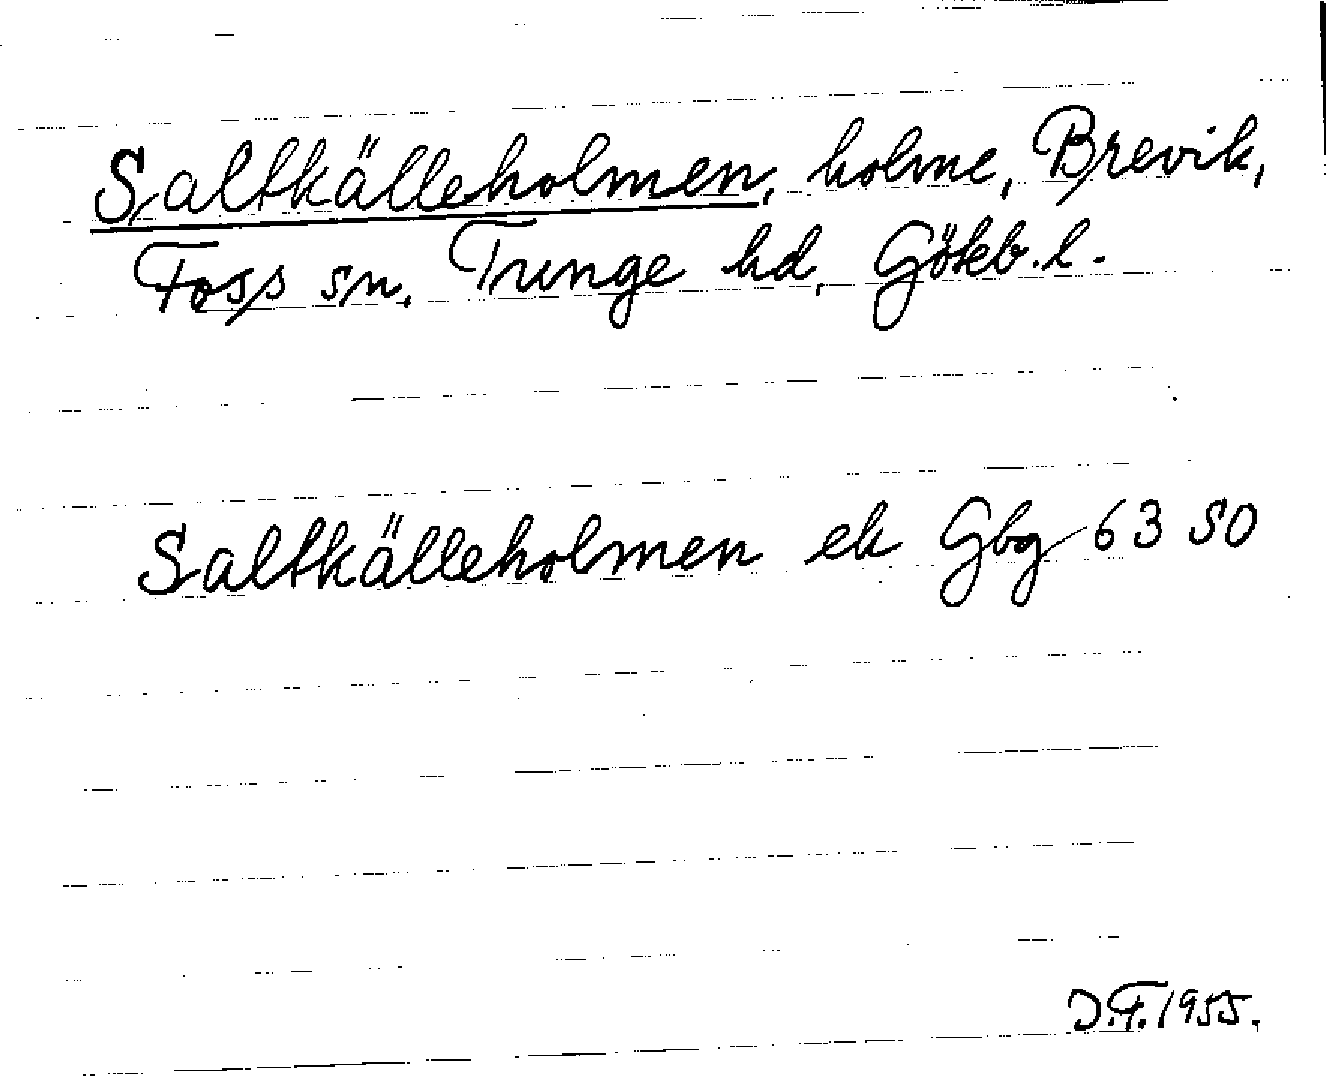 Saltkälleholmen, holme, Brevik,
Foss sn. Tunge hd, Göteb. l.
Saltkälleholmen ek Gbg 63 SO
D.F. 1955.